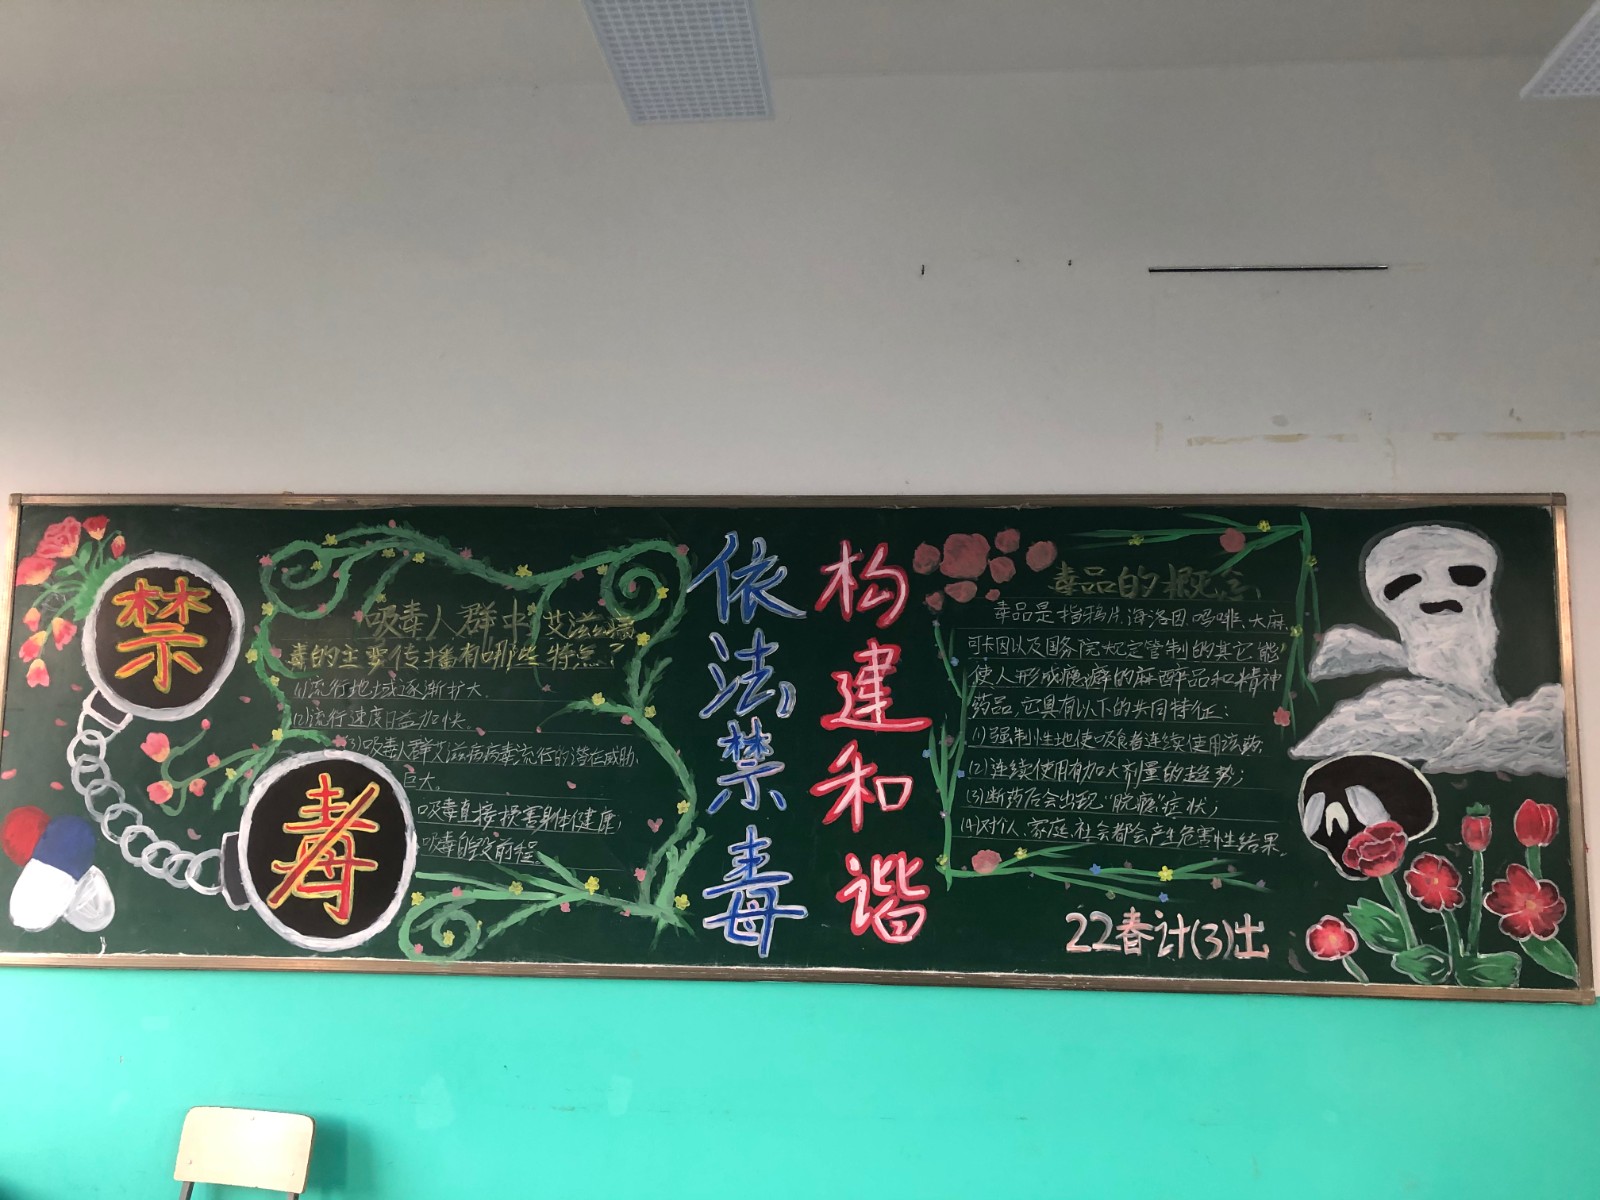 禁
毒
吸毒人群中艾滋病
毒的主要传播有哪些特点?
(1)流行地域逐渐扩大.
(2)流行速度日益加快.
(3)吸毒人群艾滋病病毒流行的潜在威胁
巨大.
吸毒直接损害身体健康;
吸毒自毁前程
依法禁毒
构建和谐
毒品的概念
毒品是指鸦片,海洛因,吗啡、大麻,
可卡因以及国务院规定管制的其它能
使人形成瘾癖的麻醉品和精神
药品,它具有以下的共同特征:
(1)强制性地使吸食者连续使用该药
(2)连续使用有加大剂量的趋势;
(3)断药后会出现"脱瘾"症状;
(4)对个人、家庭,社会都会产生危害性结果.
22春计(3)出